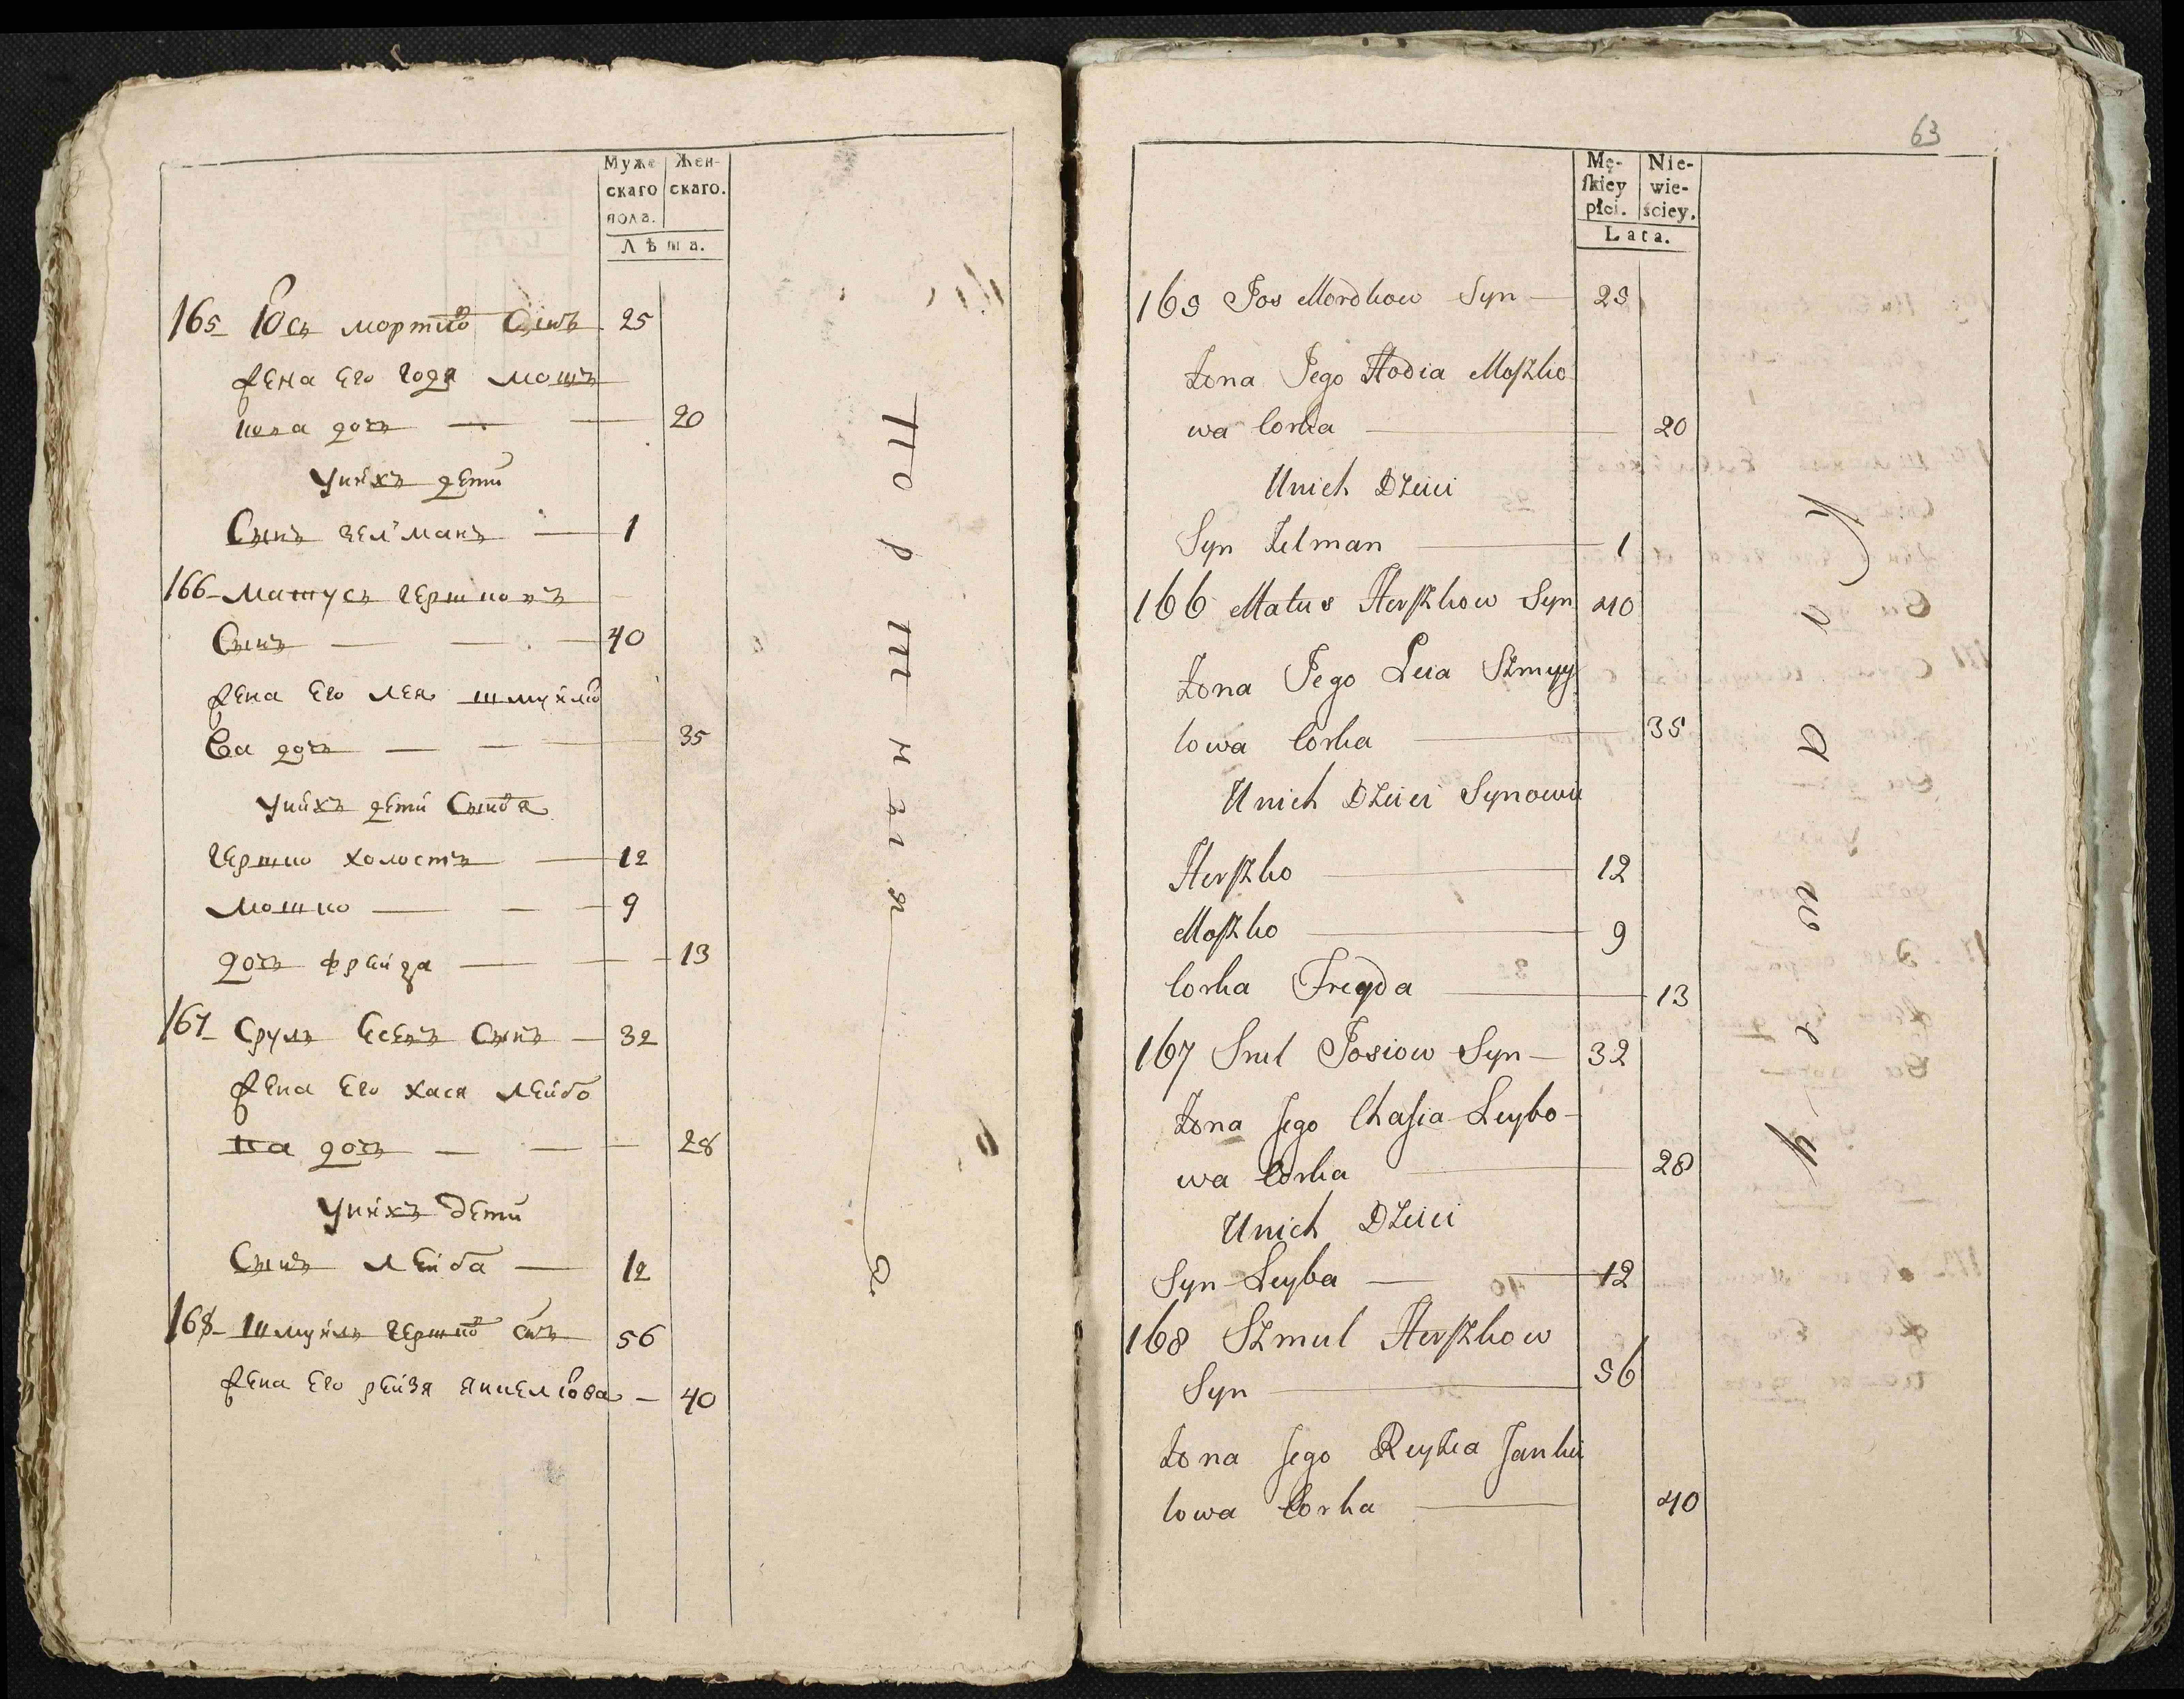 Муже
скаго
пола.
Жен-
скаго.
Лѣта.
165 Юсь мортков Сынъ 25
жена Его Годя мошъ
кова дочь 20
Унихъ дети
Сынъ зелманъ 1
166 Матусъ гершковъ
Сынъ 40
жена Его лея шмуйло
ва дочь 35
Унихъ дети Сыновя
гершко холостъ 12
мошко 9
дочь фрейда 13
167 Сруль Есевъ Сынъ 32
жена Его хася лейбо
ва дочь 28
Унихъ дети
Сынъ лейба 12
168 Шмуйлъ гершков снъ 56
жена Его рейзя янкелова 40
Портныя
63
Mę-
ſkiey
płci.
Nie-
wie-
ściey.
Lata.
165 Jos Mordkow Syn 25
Zona Jego Hodia Moſzko
wa Corka 20
Unich Dzieci
Syn Zelman 1
166 Matus Herſzkow Syn 40
Zona Jego Leia Szmuy
lowa Corka 35
Unich Dzieci Synowie
Herſzko 12
Moſzko 9
Corka Freyda 13
167 Srul Josiow Syn 32
Zona Jego Chaſia Leybo-
wa Corka 28
Unich Dzieci
Syn Leyba 12
168 Szmul Herſzkow
Syn 56
Zona Jego Reyzia Janke
lowa Corka 40
Krawcy